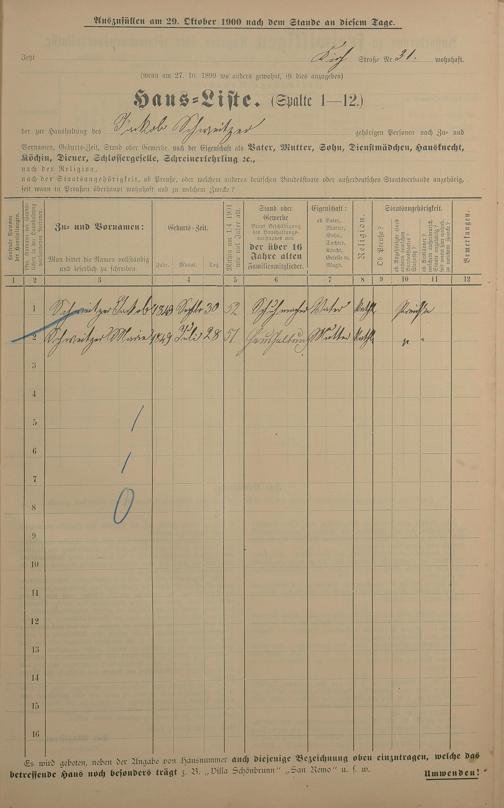 Auszufüllen am 29. Oktober 1900 nach dem Stande an diesem Tage.
Jetzt Kirch Straße Nr. 31. wohnhaft.
(wenn am 27. 10. 1899 wo anders gewohnt, ist dies anzugeben)
Haus-Liste. (Spalte 1—12.)
der zur Haushaltung des Jakob Schweitzer gehörigen Personen nach Zu- und
Vornamen, Geburts-Zeit, Stand oder Gewerbe, nach der Eigenschaft als Vater, Mutter, Sohn, Dienstmädchen, Hausknecht,
Köchin, Diener, Schlossergeselle, Schreinerlehrling ꝛc.,
nach der Religion,
nach der Staatsangehörigkeit, ob Preuße, oder welchem anderen deutschen Bundesstaate oder außerdeutschen Staatsverbande angehörig,
seit wann in Preußen überhaupt wohnhaft und zu welchem Zwecke?
Zu- und Vornamen:
Man bittet die Namen vollständig
und leserlich zu schreiben.
Geburts-Zeit.
Jahr. Monat. Tag.
Mithin am 1/4 1901
Stand oder
Gewerbe
der über 16
Jahre alten
Familienmitglieder.
Eigenschaft:
ob Vater,
Mutter,
Sohn,
Tochter,
Knecht,
Geselle,
Magd.
Religion.
Staatsangehörigkeit.
Ob Preuße?
Bemerkungen.
1 2 3 4 5 6 7 8 9 10 11 12
1 Schweitzer Jakob Septbr 30 52 Schuhmacher Vater kath. Preuße
2 Schweitzer Marie 1849 Juli 28 51 Haushaltung Mutter kath. " "
3
4
5
6
7
8
9
10
11
12
13
14
15
16
Es wird gebeten, neben der Angabe von Hausnummer auch diejenige Bezeichnung oben einzutragen, welche das
betreffende Haus noch besonders trägt z. B. „Villa Schönbrunn" „San Remo" u. s. w.
Umwenden!